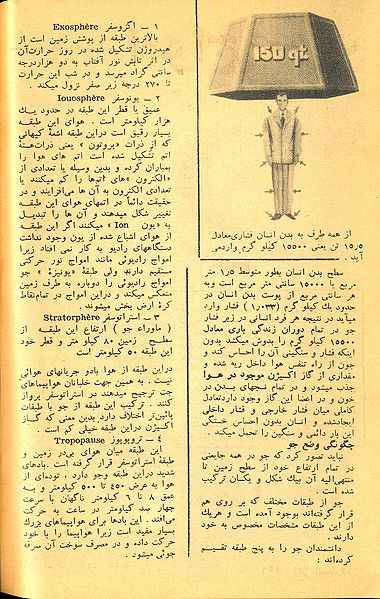 150 qt
از همه طرف به بدن انسان فشاری معادل
۱۵٫۵ تن یعنی ۱۵۵۰۰ کیلو گرم واردمی
آید .
سطح بدن انسان بطور متوسط ۱٫۵ متر
مربع یا ۱۵۰۰۰ سانتی متر مربع است وبه
هر سانتی مربع از پوست بدن انسان در
حدود یك کیلو گرم (۱٫۰۳۳) فشار وارد
میآید در نتیجه هر فرد انسانی در زیر فشار
جو در تمام دوران زندگی باری معادل
۱۵۵۰۰ کیلو گرم را بدوش میکشد بدون
اینکه فشار و سنگینی آن را احساس کند و
چون از راه تنفس هوا داخل ریه شده و
مقداری از گاز اکسیژن موجود در هوا
جذب میشود و در تمام نسجهای بدن در
خون و در اعضا این گاز وجود داردتعادل
کاملی میان فشار خارجی و فشار داخلی
ایجادشده و انسان بدون احساس خستگی
این بار دائمی و سنگین را تحمل میکند .
چگونگی وضع جو
نباید تصور کرد که جو در همه جایعنی
در تمام ارتفاع خود از سطح زمین تا
منتهی‌الیه آن بیك شکل و یکسان ترکیب
شده است .
جو از طبقات مختلف که بر روی هم
قرار گرفته‌اند بوجود آمده است و هریك
از این طبقات مشخصات مخصوص به خود
دارند .
دانشمندان جو را به پنج طبقه تقسیم
کرده‌اند :
۱ – اگزوسفر Exosphère
بالاترین طبقه از پوشش زمین است از
هیدروژن تشکیل شده در روز حرارت‌آن
در اثر تابش نور آفتاب به دو هزاردرجه
سانتی گراد میرسد و در شب این حرارت
تا ۲۷۰ درجه زیر صفر نزول میکند .
۲ – یونوسفر Iouosphère
عمیق یا قطر این طبقه در حدود یك
هزار کیلومتر است . هوای این طبقه
بسیار رقیق است دراین طبقه اشعهٔ کیهانی
که از ذرات «پروتون» یعنی ذرات‌هستهٔ
اتم تشکیل شده است اتم های هوا را
بمباران کرده و بدین وسیله یا تعدادی از
«الکترون»های اتمها را کم میکنند یا
تعدادی الکترون به آن ها می‌افزایند و در
حقیقت دائماً در اتمهای هوای این طبقه
تغییر شکل میدهند و آن ها را تبدیل
به «یون Ion » میکنند اگر این طبقه
از هوای اشباع شده از یون وجود نداشت
دستگاههای رادیو به کار نمی افتاد زیرا
امواج رادیوئی مانند امواج نور حرکتی
مستقیم دارند ولی طبقهٔ «یونیزهٔ» جو
امواج رادیوئی را دوباره به طرف زمین
منعکس میکند و دراین امواج در تمام‌نقاط
کرهٔ ارض پخش میشوند .
۳ – استراتوسفر Stratorphère
( ماوراء جو ) ارتفاع این طبقه از
سطح زمین ۸۰ کیلو متر و قطر خود
این طبقه ۵۰ کیلومتر است
دراین طبقه از هوا بادو جریانهای هوائی
نیست . به همین جهت خلبانان هواپیماهای
جت ترجیح میدهند در استراتوسفر پرواز
کنند . ترکیب این طبقه از جو با طبقات
پائین‌تر اختلاف دارد بدین معنی که گاز
اکسیژن دراین طبقه خیلی کم است .
۴ – تروپوپوز Tropopause
این طبقه میان هوای بی‌در زمین و
طبقهٔ استراتوسفر قرار گرفته است .بادهای
شدید دراین طبقه وجود دارد : توده‌ای از
هوا به عرض ۴۵۰ تا ۵۰۰ کیلومتر و به
عمق ۸ تا ۶ کیلومتر ناگهان با سرعت
چهار صد کیلومتر در ساعت به حرکت
می‌افتد . این بادها برای هواپیماهای بزرك
بسیار مفید است زیرا هواپیما را با خود
حرکت داده و در مصرف سوخت آن صرفه
جوئی میشود .